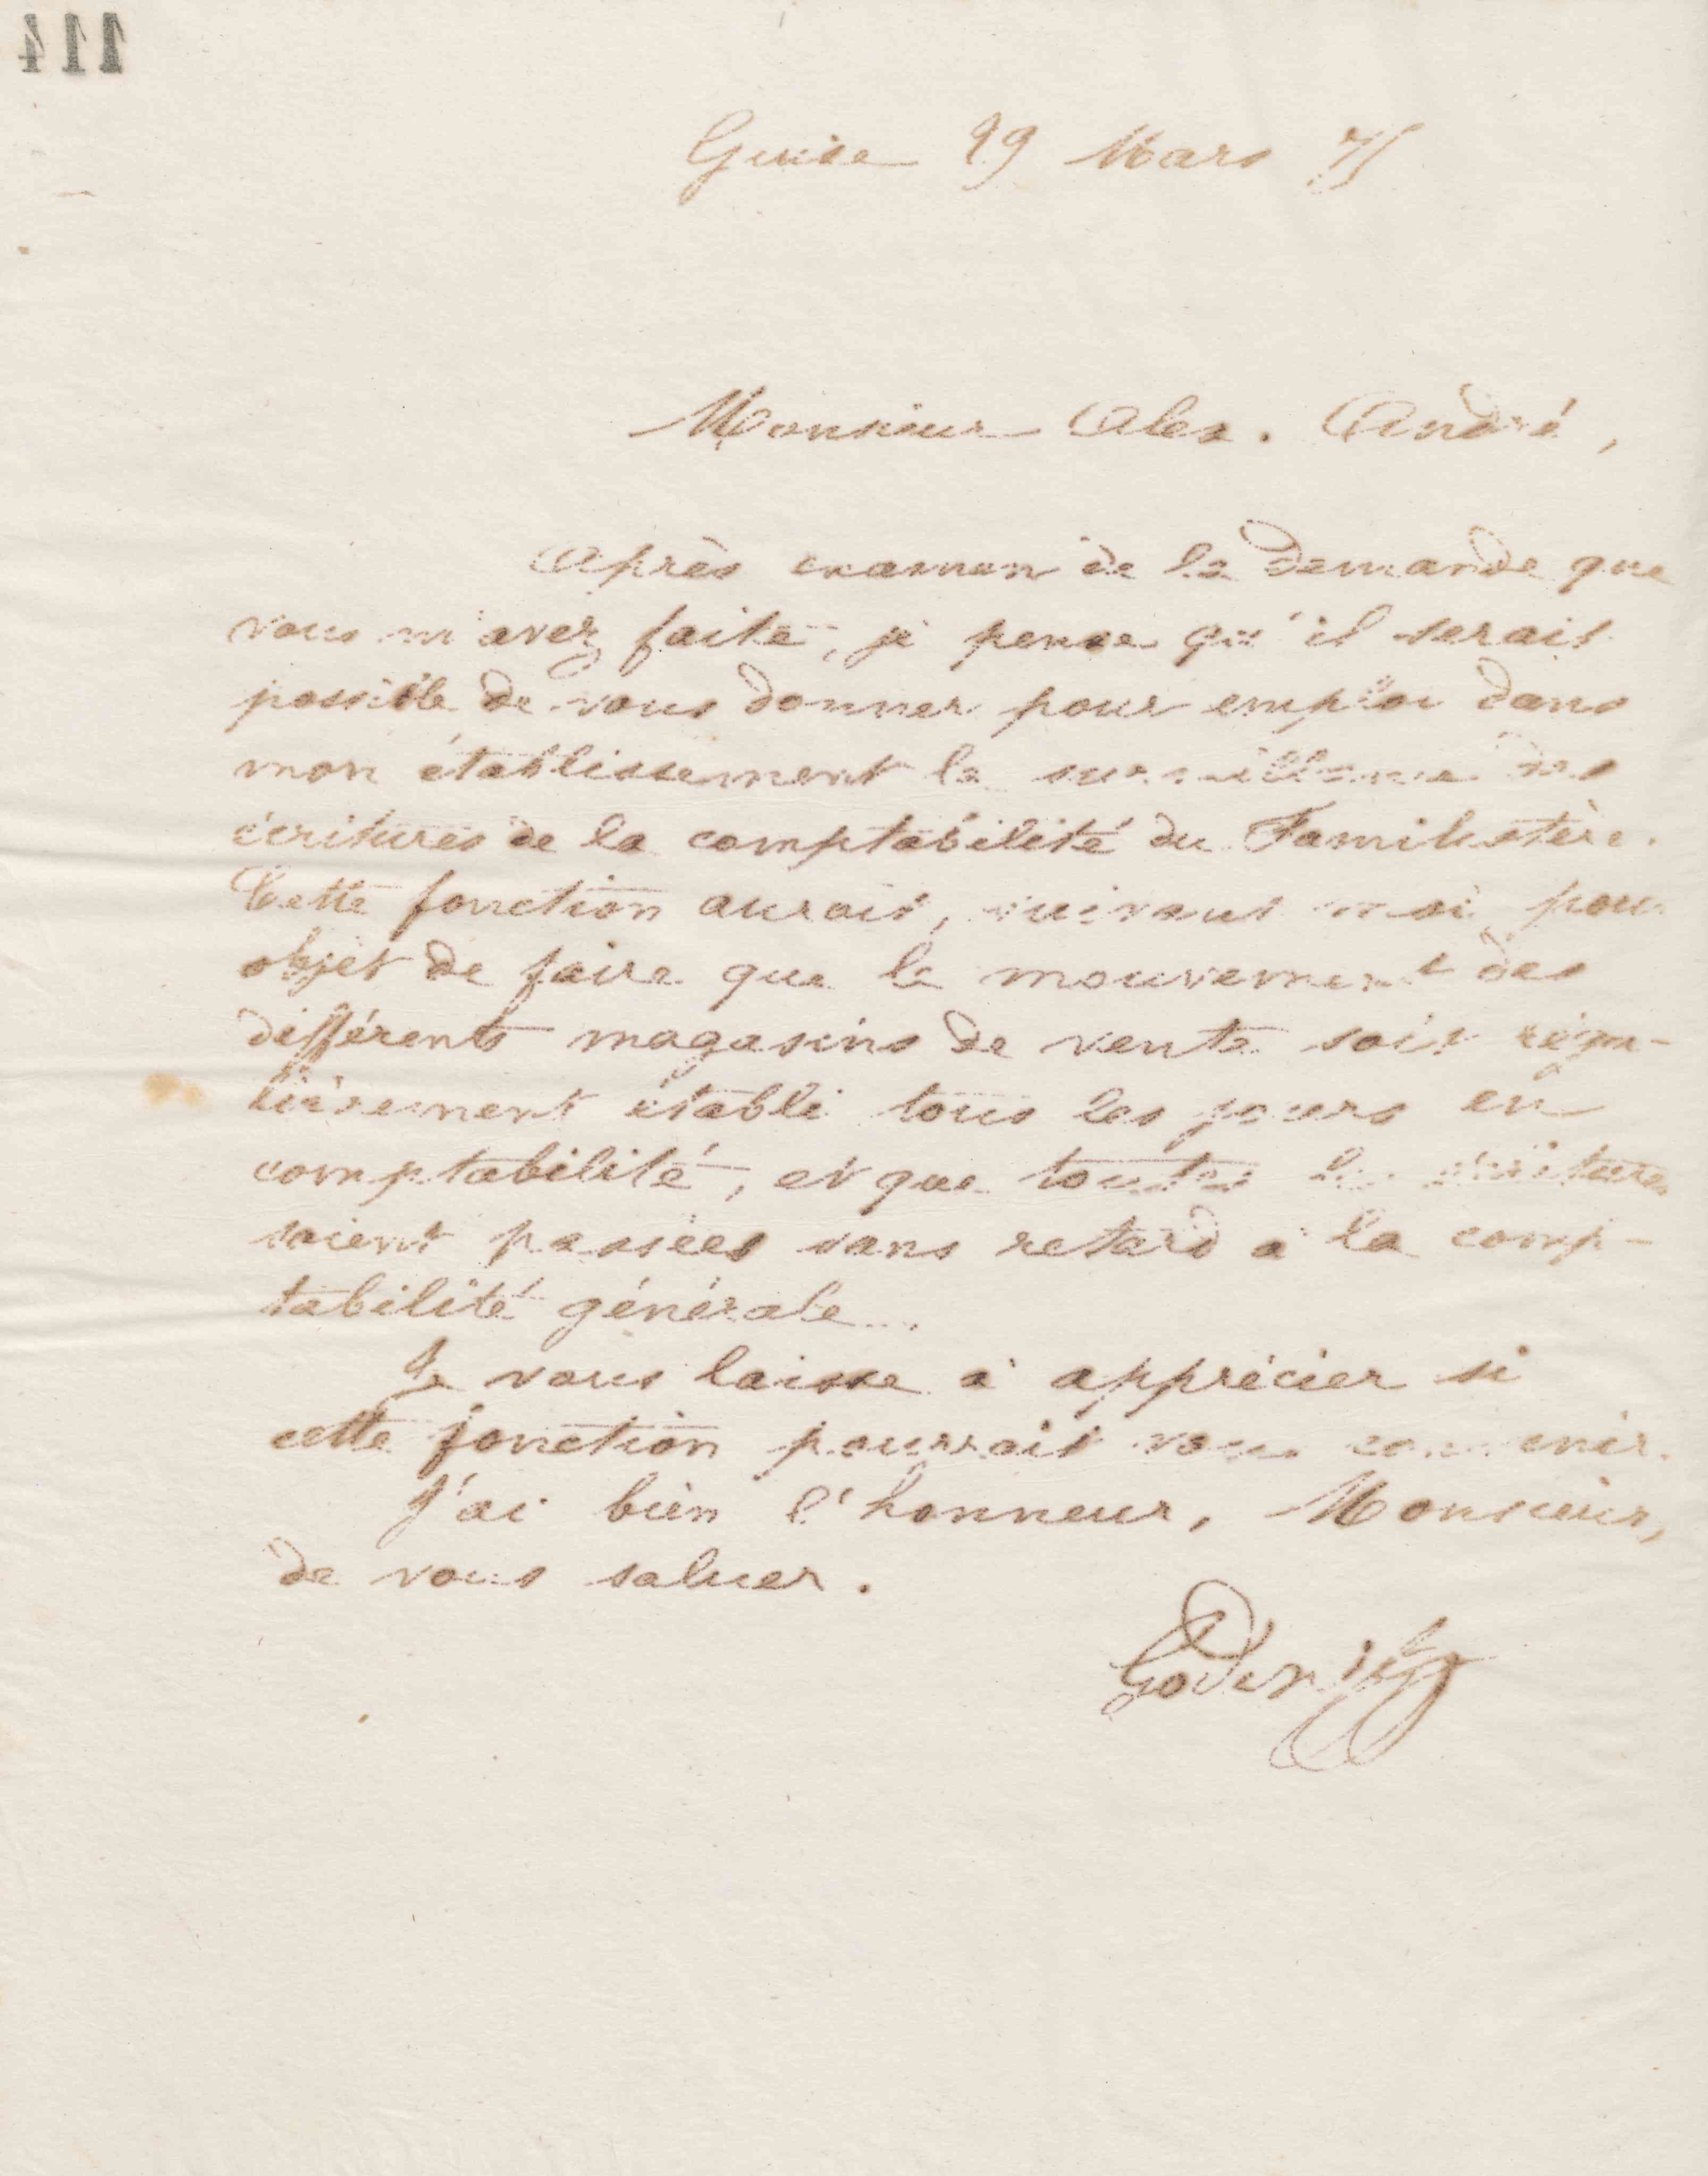 114
Guise 29 Mars 75
Monsieur Alex. André,
Après examen de la demande que
vous m'avez faite, je pense qu'il serait
possible de vous donner pour emploi dans
mon établissement la surveillance des
écritures de la comptabilité du Familistère.
Cette fonction aurait, suivant moi pour
objet de faire que le mouvement des
différents magasins de vente soit régu-
lièrement établi tous les jours en
comptabilité, et que toutes les écritures
soient passées sans retard à la comp-
tabilité générale.
Je vous laisse à apprécier si
cette fonction pourrait vous convenir.
J'ai bien l'honneur, Monsieur,
de vous saluer.
Godin